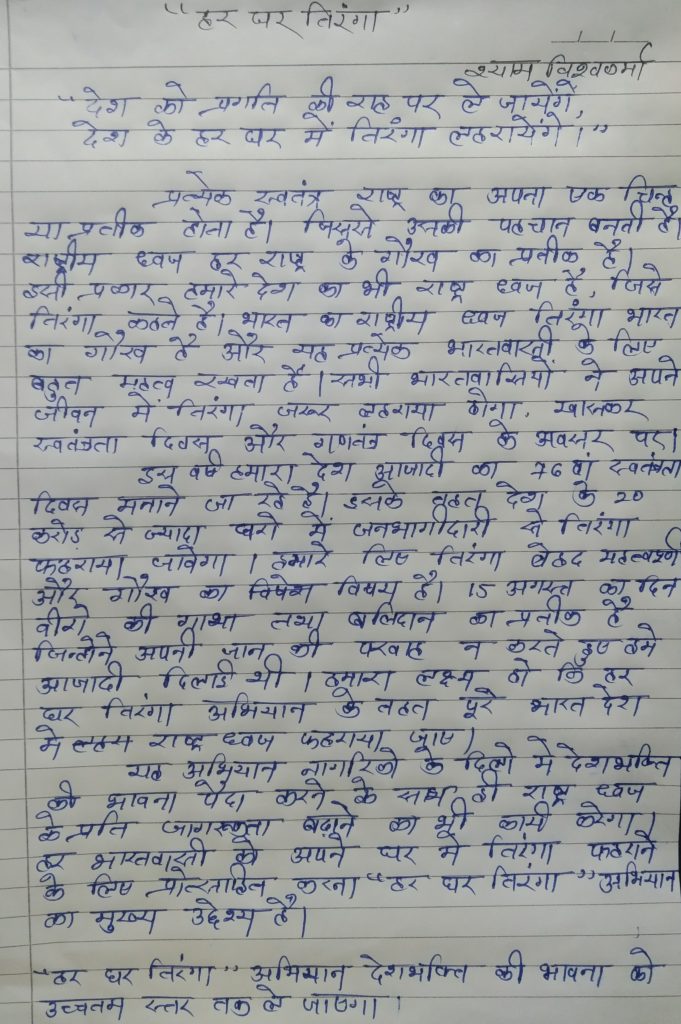 "हर घर तिरंगा"
श्याम विश्वकर्मा
"देश को प्रगति की राह पर ले जायेंगें,
देश के हर घर में तिरंगा लहरायेंगे।"
प्रत्येक स्वतंत्र राष्ट्र का अपना एक चिन्ह
या प्रतीक होता है। जिससे उसकी पहचान बनती है।
राष्ट्रीय ध्वज हर राष्ट्र के गौरव का प्रतीक है।
इसी प्रकार हमारे देश का भी राष्ट्र ध्वज है, जिसे
तिरंगा कहते है। भारत का राष्ट्रीय ध्वज तिरंगा भारत
का गौरव है और यह प्रत्येक भारतवासी के लिए
बहुत महत्व रखता है। सभी भारतवासियों ने अपने
जीवन में तिरंगा जरूर लहराया होगा, खासकर
स्वतंत्रता दिवस और गणतंत्र दिवस के अवसर पर।
इस वर्ष हमारा देश आजादी का 76 वां स्वतंत्रता
दिवस मनाने जा रहे है। इसके तहत देश के 20
करोड़ से ज्यादा घरो में जनभागीदारी से तिरंगा
फहराया जावेगा। हमारे लिए तिरंगा बेहद महत्वपूर्ण
और गौरव का विषेश विषय है। 15 अगस्त का दिन
वीरो की गाथा तथा बलिदान का प्रतीक है
जिन्होंने अपनी जान की परवाह न करते हुए हमे
आजादी दिलाई थी। हमारा लक्ष्य हो कि हर
घर तिरंगा अभियान के तहत पूरे भारत देश
मे राष्ट्र ध्वज फहराया जाए।
यह अभियान नागरिको के दिलो में देशभक्ति
की भावना पैदा करने के साथ ही राष्ट्र ध्वज
के प्रति जागरूकता बढ़ाने का भी कार्य करेगा।
हर भारतवासी को अपने घर में तिरंगा फहराने
के लिए प्रोत्साहित करना "हर घर तिरंगा" अभियान
का मुख्य उद्देश्य है।
"हर घर तिरंगा" अभियान देशभक्ति की भावना को
उच्चतम स्तर तक ले जाएगा।